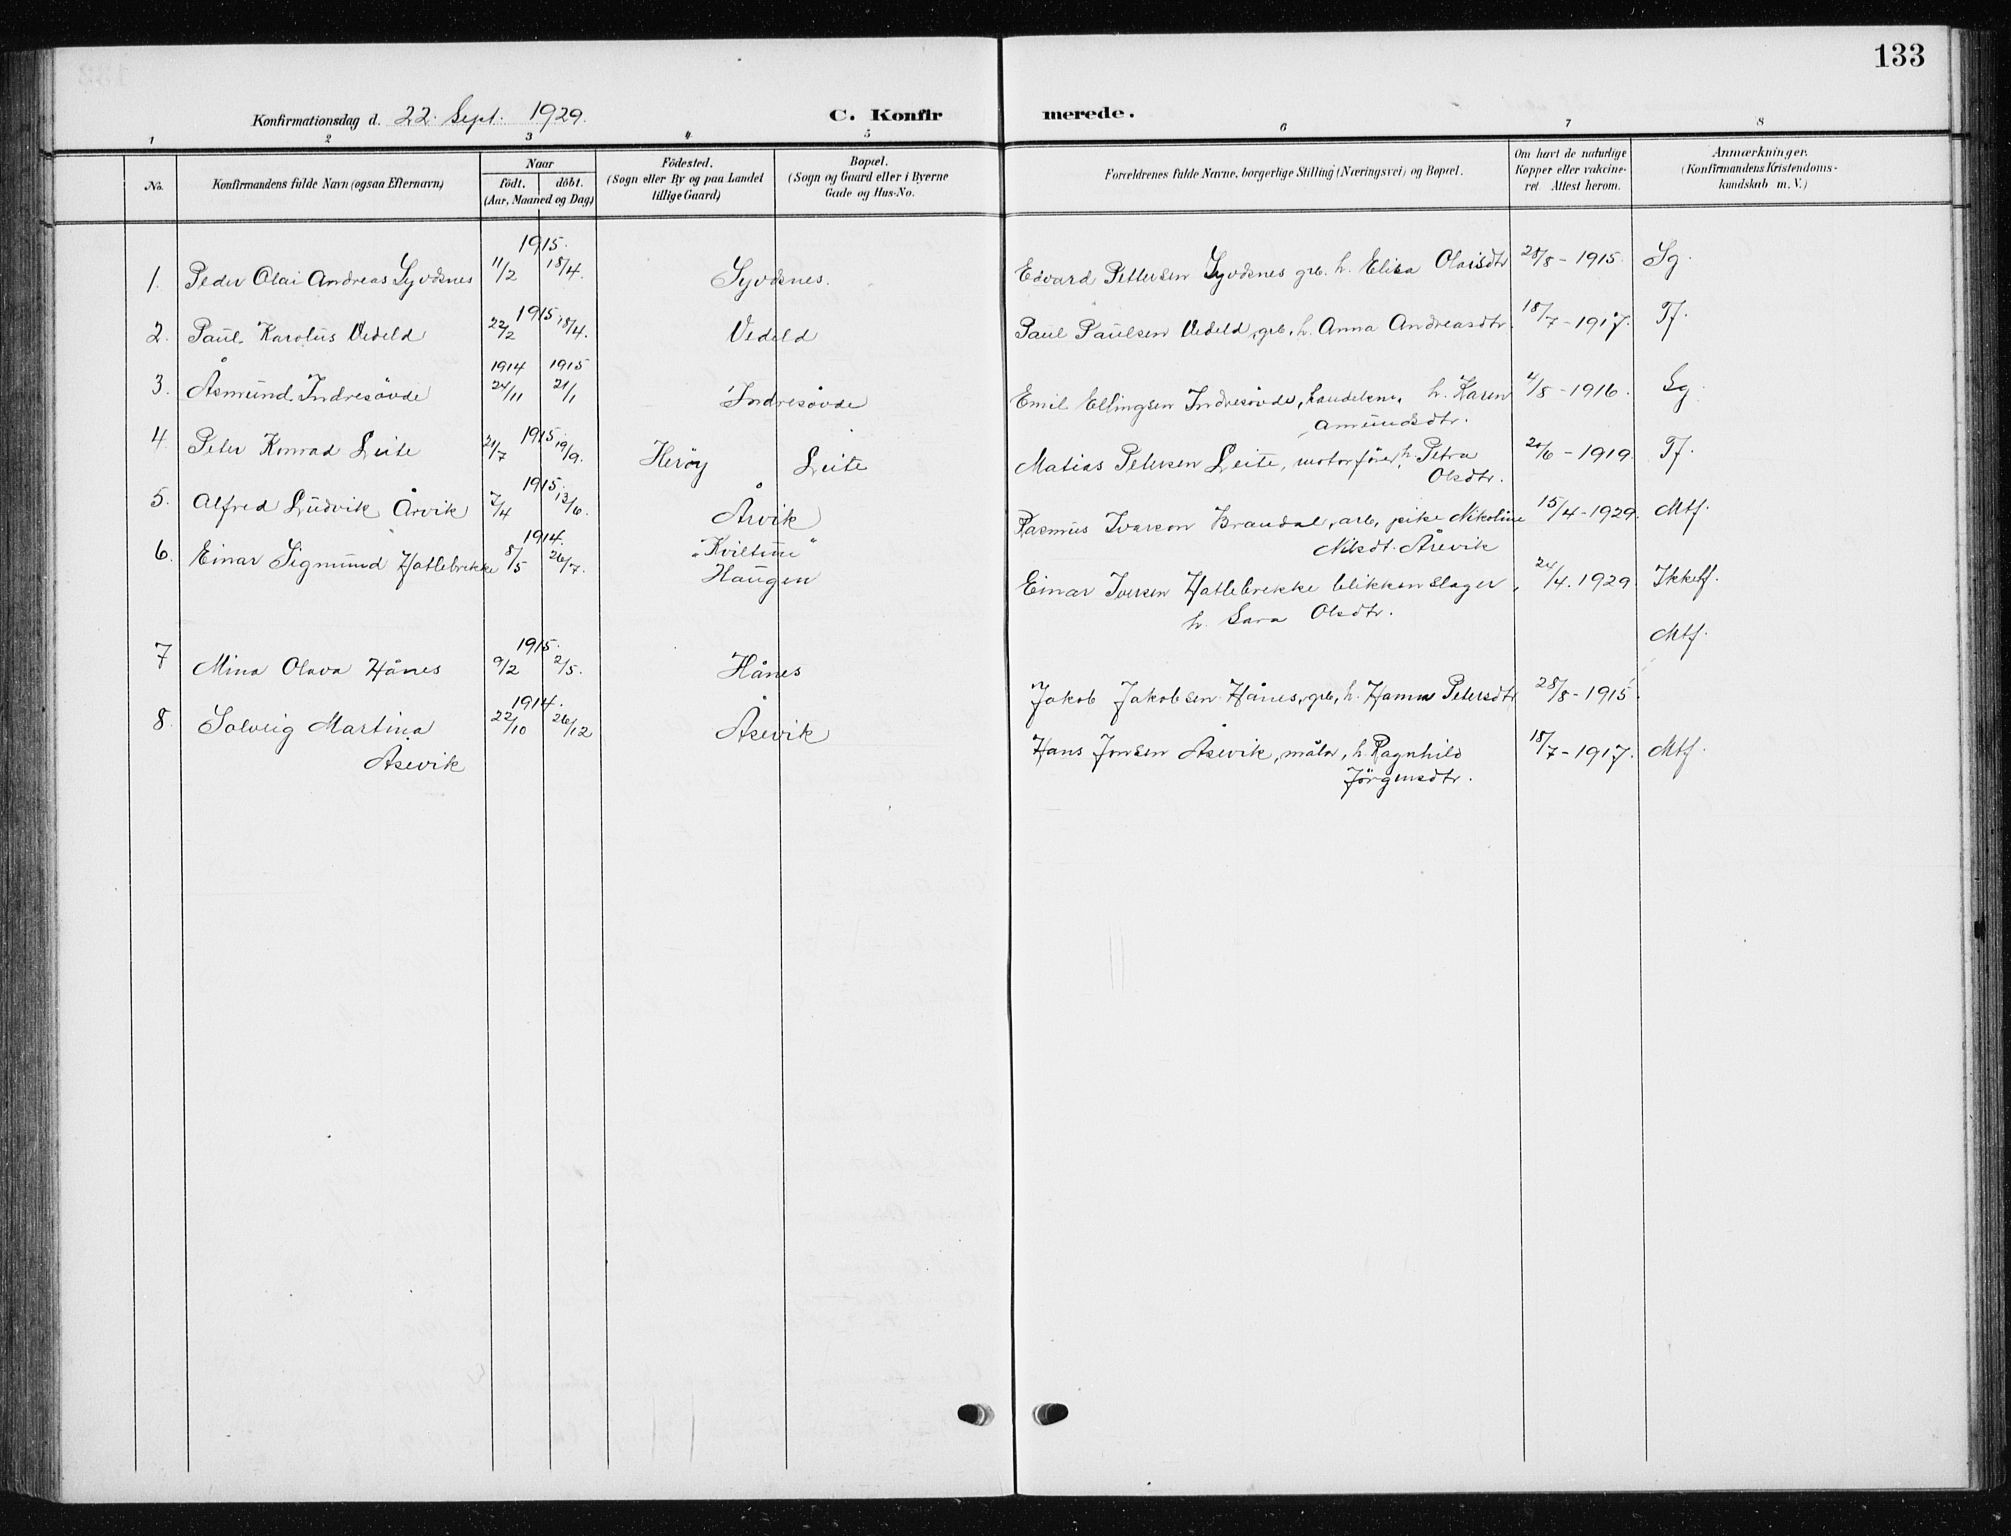 133
Konfirmationsdag d. 22. Sept. 1929. C. Konfirmerede.
1 2 3 4 5 6 7 8
No.
Konfirmandens fulde Navn (ogsaa Efternavn)
Naar
födt. döbt.
(Aar, Maaned og Dag)
Födested.
(Sogn eller By og paa Landet
tillige Gaard)
Bopæl.
(Sogn og Gaard eller i Byerne
Gade og Hus-No.
Forældrenes fulde Navne, borgerlige Stilling (Næringsvei) og Bopæl.
Om havt de naturlige
Kopper eller vakcine-
ret. Attest herom.
Anmærkninger.
(Konfirmandens Kristendoms-
kundskab m. V.)
1915.
1. Peder Olai Andreas Syvdsnes 11/2 18/4. Syvdsnes. Edvard Pettersen Syvdsnes grb. h. Elisa Olaisdtr 28/8 - 1915. Sg.
1915
2. Paul Karolus Vedeld 22/2 18/4. Vedeld Paul Paulsen Vedeld, grb, h. Anna Andreasdtr. 18/7 - 1917. Tf.
1914 1915
3. Åsmund Indresövde 24/11 21/1 Indresövde Emil Ellingsen Indresövde, handelsm, h. Karen 4/8 - 1916. Sg.
Amundsdtr.
1915.
4. Peter Konrad Leite 21/7 19/9. Heröy Leite Matias Petersen Leite, motorförer, h. Petra 20/6 - 1919. Tf.
Olsdtr.
1915.
5. Alfred Ludvik Årvik 7/4 13/6. Årvik Rasmus Iverson Brandal, arb, pike Nikoline 15/4 - 1929. Mtf.
Nilsdt. Årevik
1914.
6. Einar Sigmund Hatlebrekke 8/5 26/7. "Kviltun"
Haugen Einar Iversen Hatlebrekke blikkenslager, 24/4. 1929 Ikketf.
h. Sara Olsdtr.
Mtf.
1915.
7 Mina Olava Hånes 9/2 2/5. Hånes Jakob Jakobsen Hånes, grb, h. Hanna Petersdtr 28/8 - 1915
1914.
8. Solveig Martina 22/10 26/12 Åsevik Hans Jonsen Åsevik, måler, h. Ragnhild 18/7 - 1917. Mtf.
Åsevik Jörgensdtr.